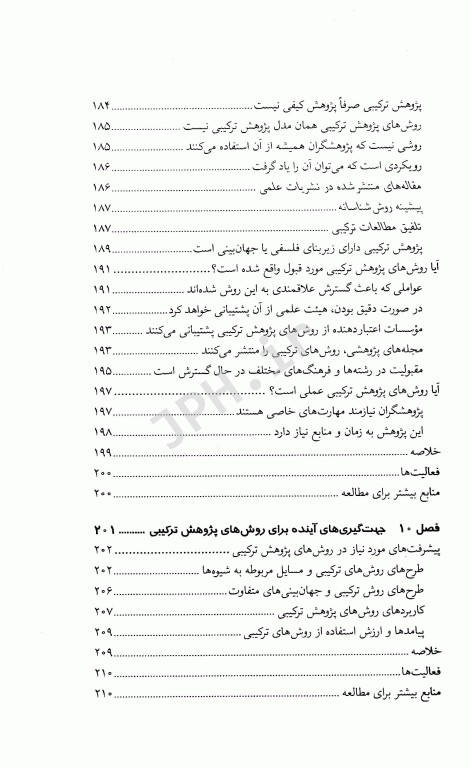 پژوهش ترکیبی صرفاً پژوهش کیفی نیست ........ ۱۸۴
روش‌های پژوهش ترکیبی همان مدل پژوهش ترکیبی نیست ........ ۱۸۵
روشی نیست که پژوهشگران همیشه از آن استفاده می‌کنند ........ ۱۸۵
رویکردی است که می‌توان آن را یاد گرفت ........ ۱۸۶
مقاله‌های منتشر شده در نشریات علمی ........ ۱۸۶
پیشینه روش شناسانه ........ ۱۸۷
تلفیق مطالعات ترکیبی ........ ۱۸۷
پژوهش ترکیبی دارای زیربنای فلسفی یا جهان‌بینی است ........ ۱۸۹
آیا روش‌های پژوهش ترکیبی مورد قبول واقع شده است؟ ........ ۱۹۱
عواملی که باعث گسترش علاقمندی به این روش شده‌اند ........ ۱۹۱
در صورت دقیق بودن، هیئت علمی از آن پشتیبانی خواهد کرد ........ ۱۹۲
مؤسسات اعتباردهنده از روش‌های پژوهش ترکیبی پشتیبانی می‌کنند ........ ۱۹۳
مجله‌های پژوهشی، روش‌های ترکیبی را منتشر می‌کنند ........ ۱۹۳
مقبولیت در رشته‌ها و فرهنگ‌های مختلف در حال گسترش است ........ ۱۹۵
آیا روش‌های پژوهش ترکیبی عملی است؟ ........ ۱۹۷
پژوهشگران نیازمند مهارت‌های خاصی هستند ........ ۱۹۷
این پژوهش به زمان و منابع نیاز دارد ........ ۱۹۸
خلاصه ........ ۱۹۹
فعالیت‌ها ........ ۲۰۰
منابع بیشتر برای مطالعه ........ ۲۰۰
فصل ۱۰ جهت‌گیری‌های آینده برای روش‌های پژوهش ترکیبی ........ ۲۰۱
پیشرفت‌های مورد نیاز در روش‌های پژوهش ترکیبی ........ ۲۰۲
طرح‌های روش‌های ترکیبی و مسایل مربوطه به شیوه‌ها ........ ۲۰۲
طرح‌های روش‌های ترکیبی و جهان‌بینی‌های متفاوت ........ ۲۰۶
کاربردهای روش‌های پژوهش ترکیبی ........ ۲۰۷
پیامدها و ارزش استفاده از روش‌های ترکیبی ........ ۲۰۹
خلاصه ........ ۲۰۹
فعالیت‌ها ........ ۲۱۰
منابع بیشتر برای مطالعه ........ ۲۱۰
JPH.ir